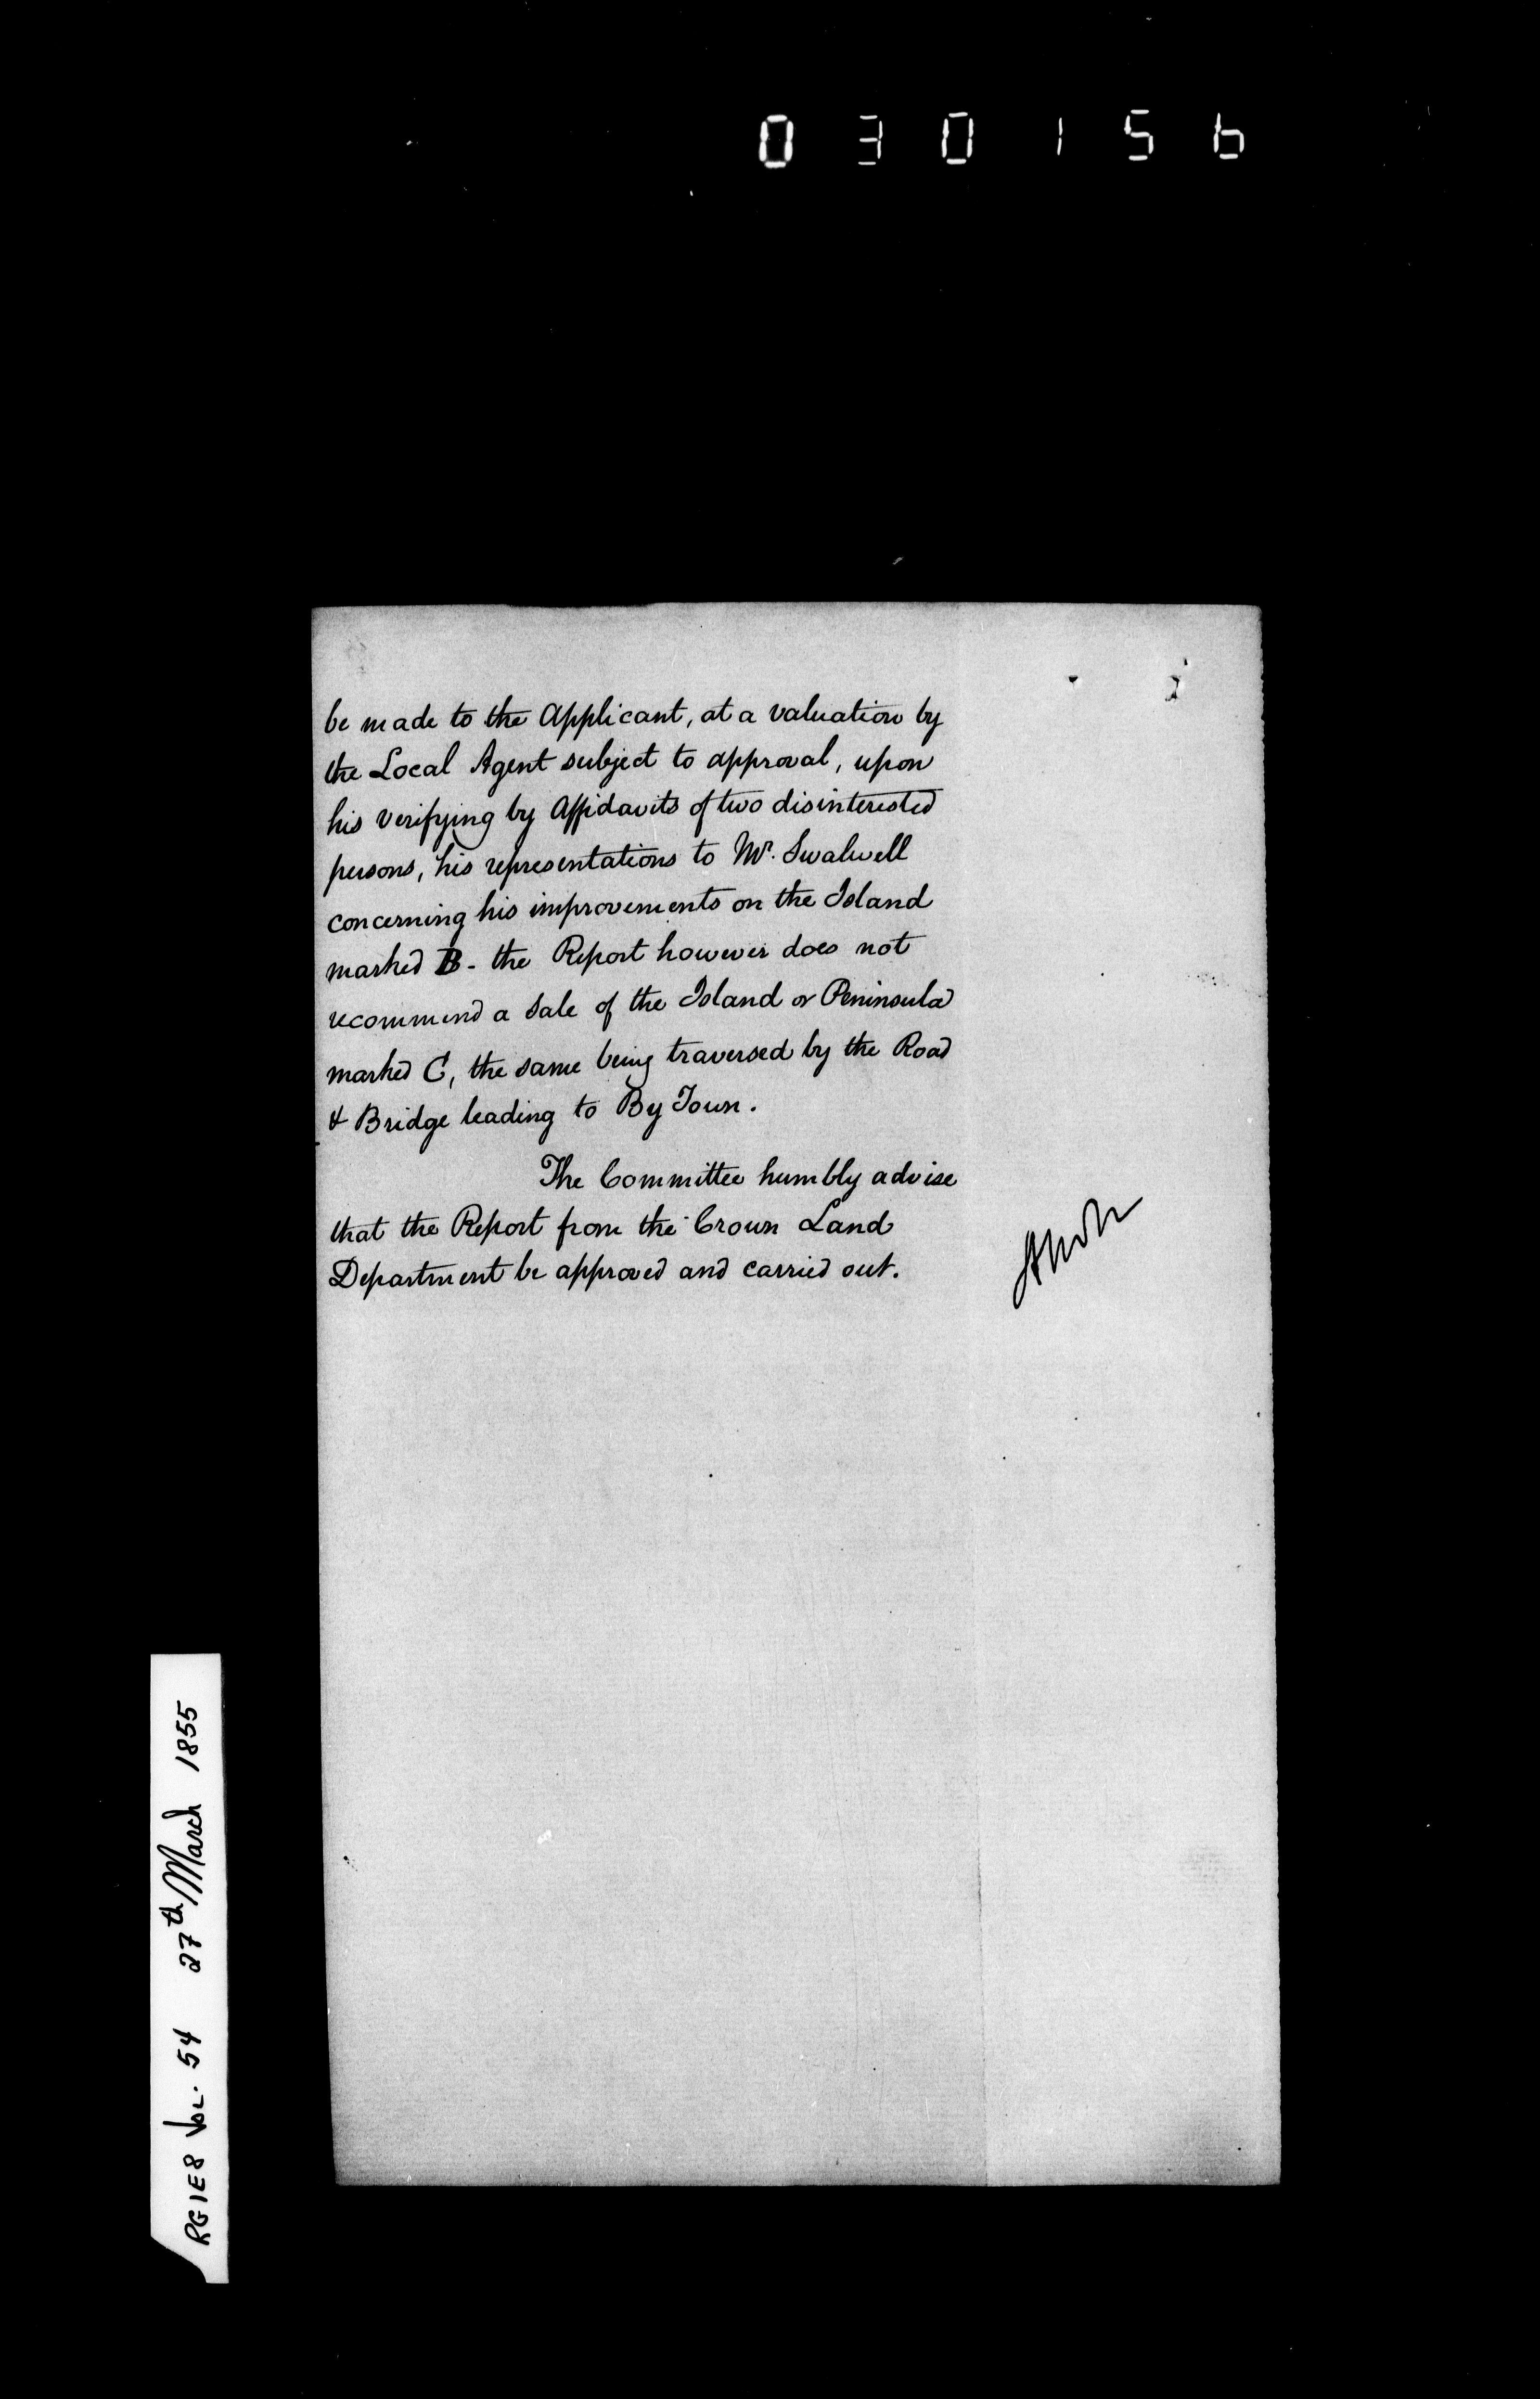 030156
be made to the Applicant, at a valuation by
the Local Agent subject to approval, upon
his verifying by Affidavits of two disinterested
persons, his representations to Mr. Swalwell
concerning his improvements on the Island
marked B - the Report however does not
recommend a Sale of the Island or Peninsula
marked C, the same being traversed by the Road
& Bridge leading to By Town.
The Committee humbly advise
that the Report from the Crown Land
Department be approved and carried out.
RG1E8 Vol. 54 27th March 1855